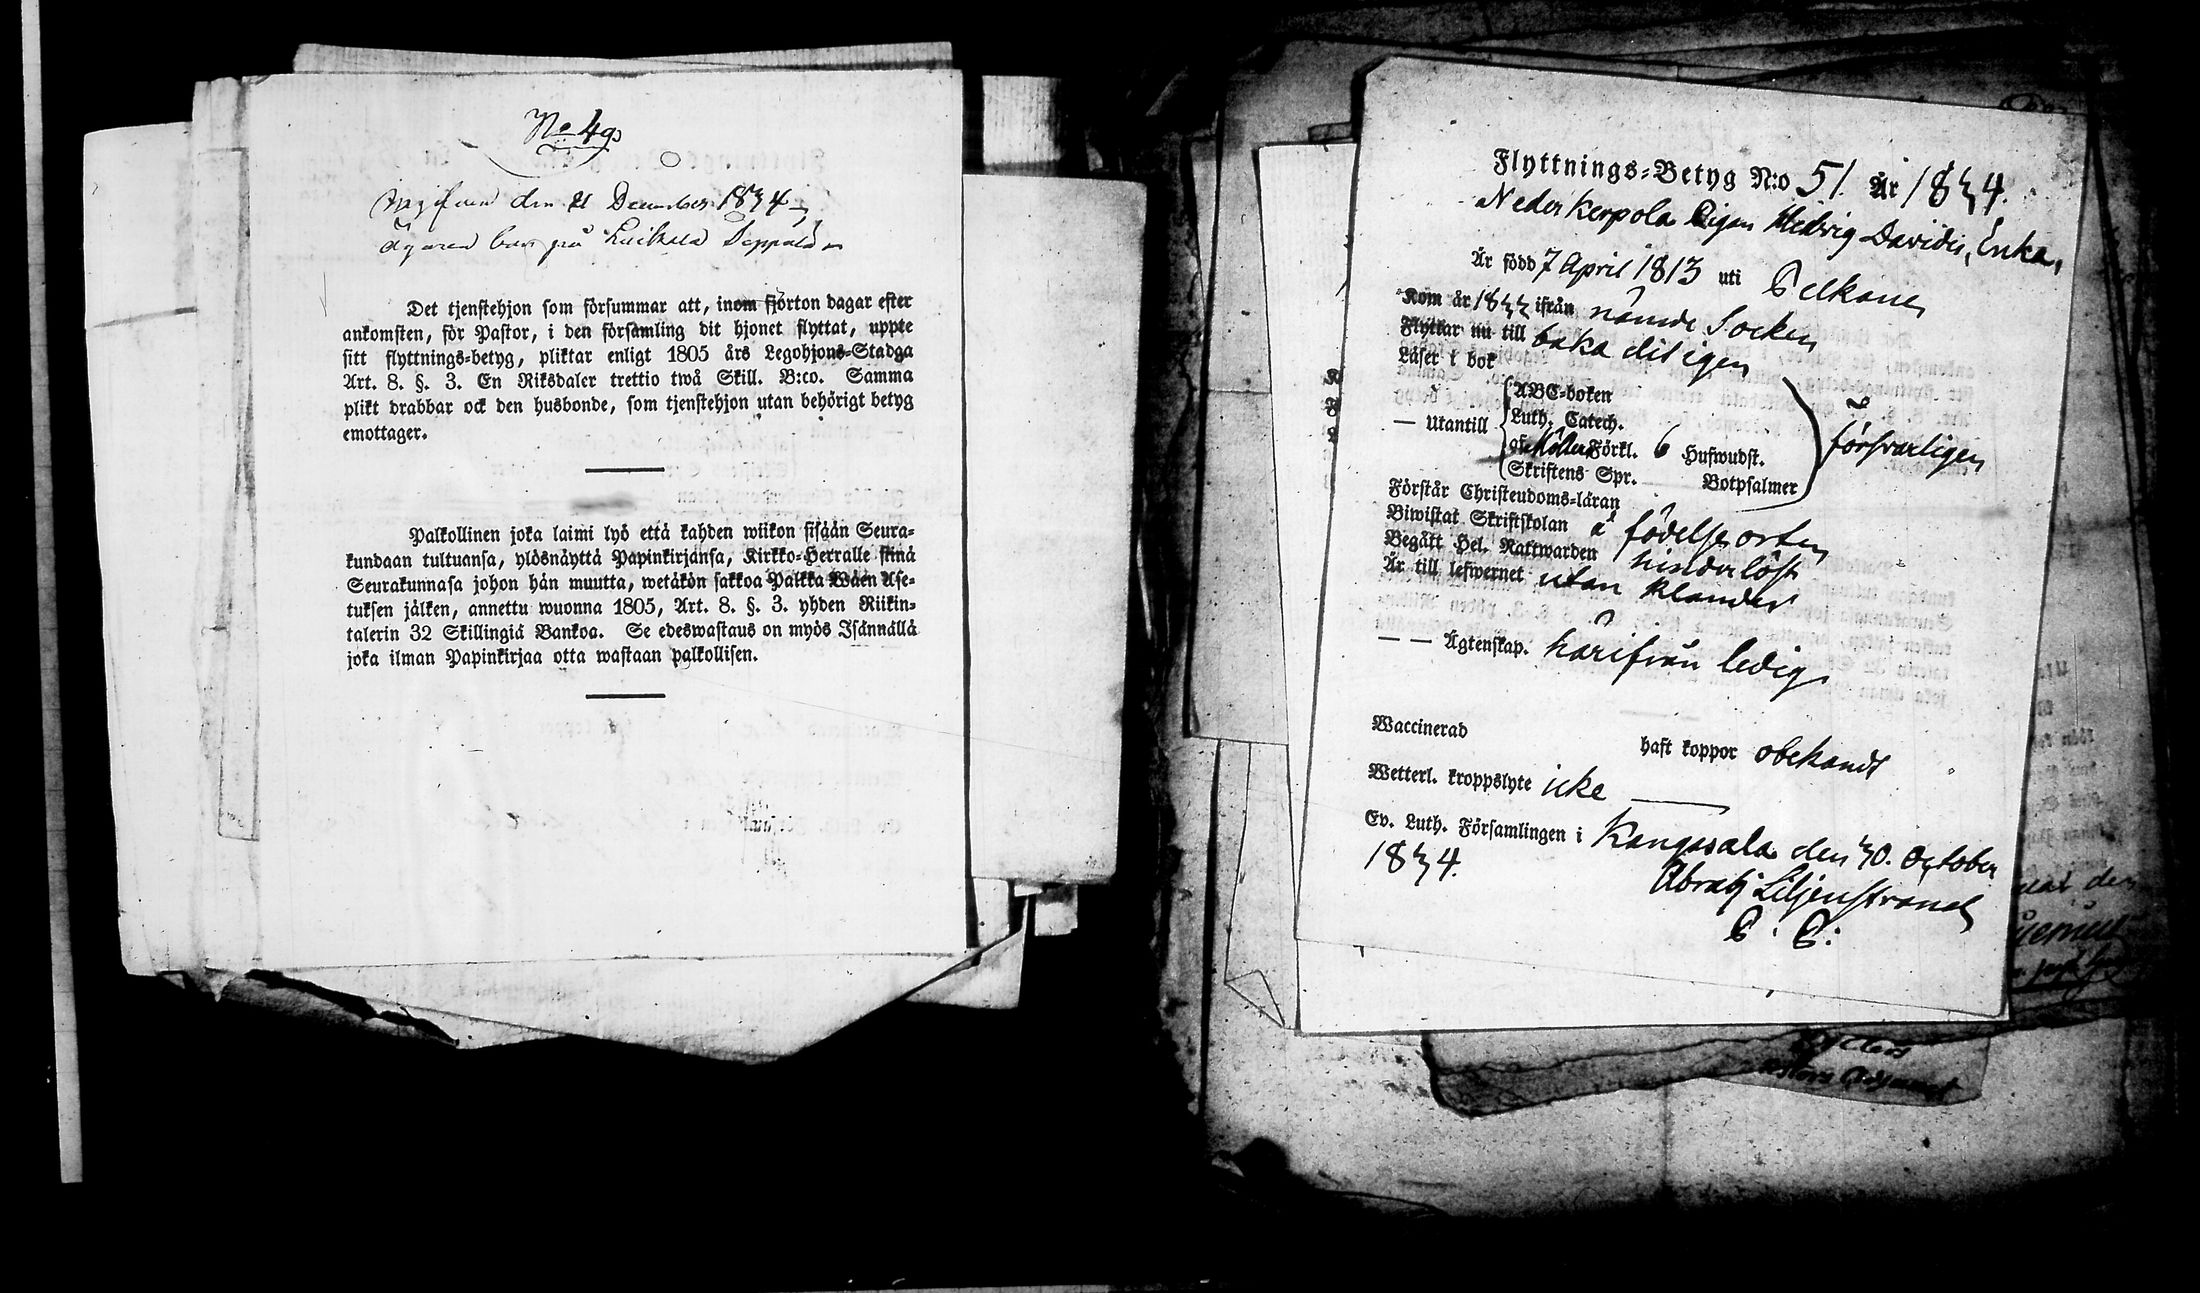 No 49
Ingifven den 21 December 1834
Ägaren bor på Luikala Seppälä
Det tjenstehjon som försummar att, inom fjorton dagar efter
ankomsten, för Pastor, i den församling dit hjonet flyttat, uppte
sitt flyttnings-betyg, pliktar enligt 1805 års Legohjons-Stadga
Art. 8. §. 3. En Riksdaler trettio twå Skill. B:co. Samma
plikt drabbar ock den husbonde, som tjenstehjon utan behörigt betyg
emottager.
Palkollinen joka laimi lyö että kahden wiikon sisään Seura-
kundaan tultuansa, ylösnäyttä Papinkirjansa, Kirkko-Herralle siinä
Seurakunnasa johon hän muutta, wetäkön sakkoa Palkka Wäen Ase-
tuksen jälken, annettu wuonna 1805, Art. 8. §. 3. yhden Riikin-
talerin 32 Skillingiä Bankoa. Se edeswastaus on myös Isännällä
joka ilman Papinkirjaa otta wastaan palkollisen.
Flyttnings-Betyg N:o 51. År 1834.
Nederkerpola Pigan Hedvig Davidsr Enka,
Är född 7 April 1813 uti Pelkäne
Kom år 1833 ifrån nämde Socken
Flyttar nu till baka dit igen
Läser i bok
ABC-boken
— Utantill Luth. Catech.
af Möllers Förkl. 6 Hufwudst. försvarligen
Skriftens Spr. Botpsalmer
Förstår Christendoms-läran
Biwistat Skriftskolan å födelseorten
Begått Hel. Nattwarden hinderlöst
Är till lefwernet utan klander
— — Ägtenskap. härifrån ledig
Waccinerad haft koppor obekandt
Wetterl. kroppslyte icke
Ev. Luth. Församlingen i Kangasala den 30. October
1834.
Abrah Liljenstrand
P. P.